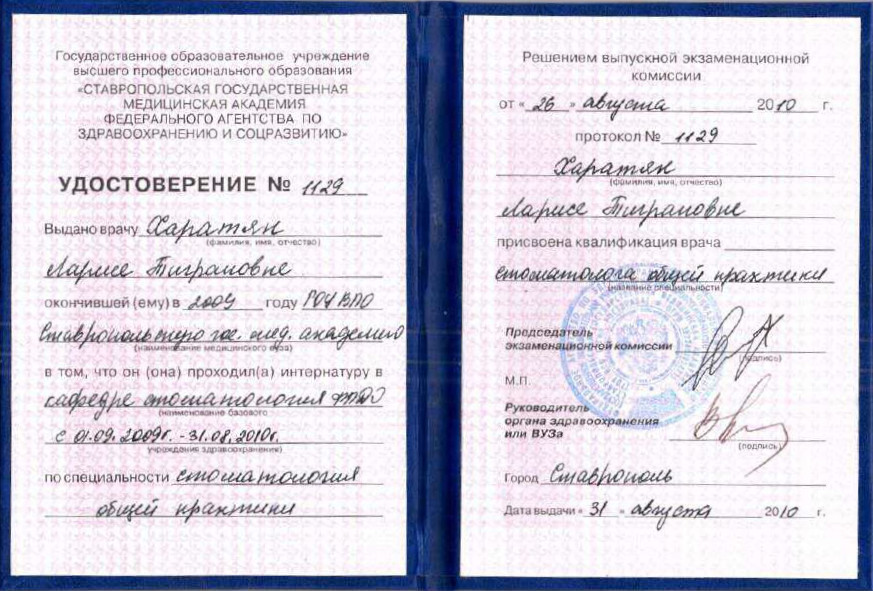 Государственное образовательное учреждение
высшего профессионального образования
«СТАВРОПОЛЬСКАЯ ГОСУДАРСТВЕННАЯ
МЕДИЦИНСКАЯ АКАДЕМИЯ
ФЕДЕРАЛЬНОГО АГЕНТСТВА ПО
ЗДРАВООХРАНЕНИЮ И СОЦРАЗВИТИЮ»
УДОСТОВЕРЕНИЕ № 1129
Выдано врачу Харатян
(фамилия, имя, отчество)
Ларисе Тиграновне
окончившей (ему) в 2009 году ГОУ ВПО
Ставропольскую гос. мед. академию
(наименование медицинского вуза)
в том, что он (она) проходил(а) интернатуру в
кафедре стоматологии ФПДО
(наименование базового
с 01.09.2009г. - 31.08.2010г.
учреждения здравоохранения)
по специальности стоматология
общей практики
Решением выпускной экзаменационной
комиссии
от «26» августа 2010 г.
протокол № 1129
Харатян
(фамилия, имя, отчество)
Ларисе Тиграновне
присвоена квалификация врача
стоматолога общей практики
(название специальности)
Председатель
экзаменационной комиссии
(подпись)
М.П.
Руководитель
органа здравоохранения
или ВУЗа
(подпись)
Город Ставрополь
Дата выдачи «31» августа 2010 г.